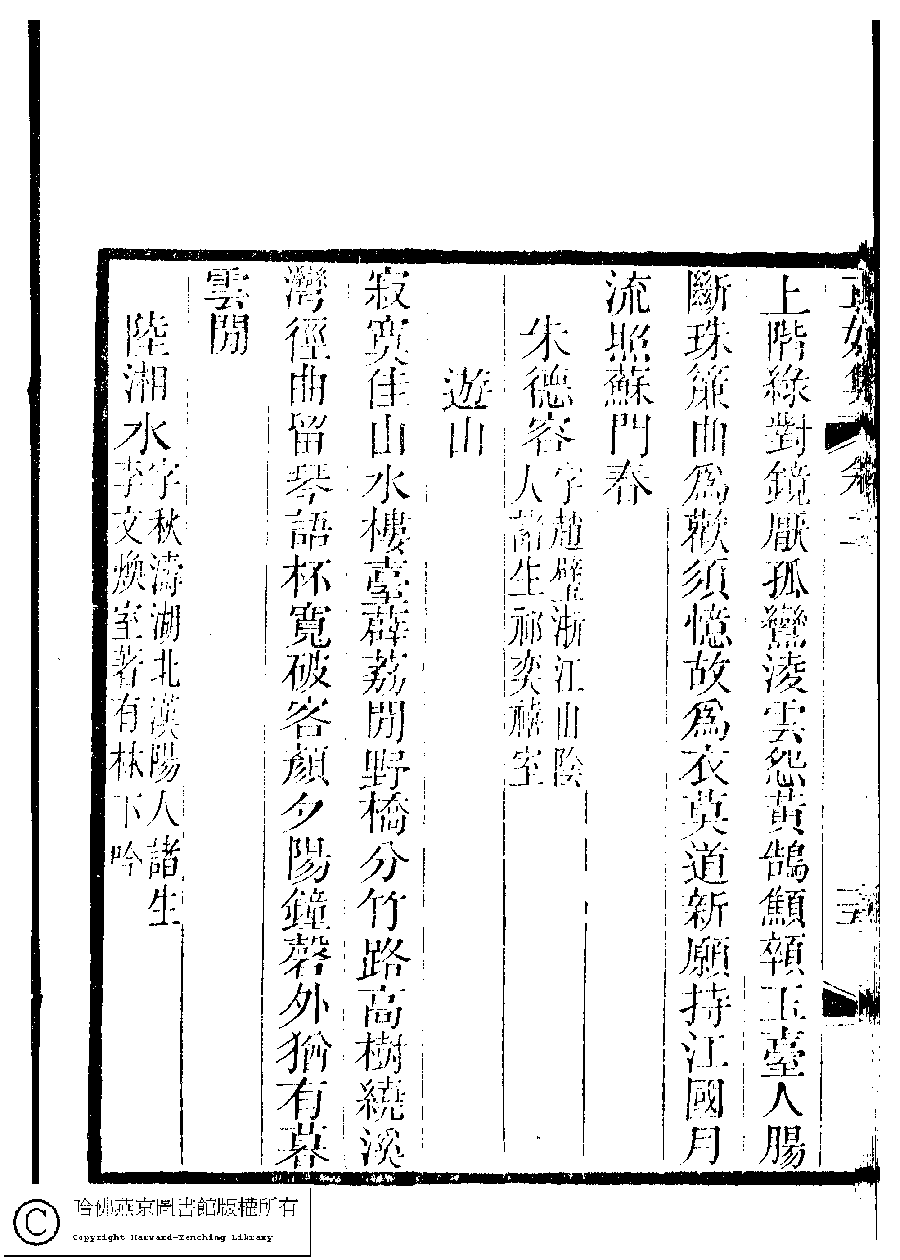 正始集 卷二
上階綠對鏡厭孤鸞淩雲怨黃鵠顦顇玉臺人腸
斷珠簾曲爲歡須憶故爲衣莫道新願持江國月
流照蘇門春
朱德容
字趙璧浙江山陰
人諸生祁奕禧室
遊山
寂寞佳山水樓臺薜荔閒野橋分竹路高樹繞溪
灣徑曲留琴語杯寬破客顏夕陽鐘磬外猶有暮
雲閒
陸湘水
字秋濤湖北漢陽人諸生
李文煥室著有林下吟
哈佛燕京圖書館版權所有
Copyright Harvard-Yenching Library